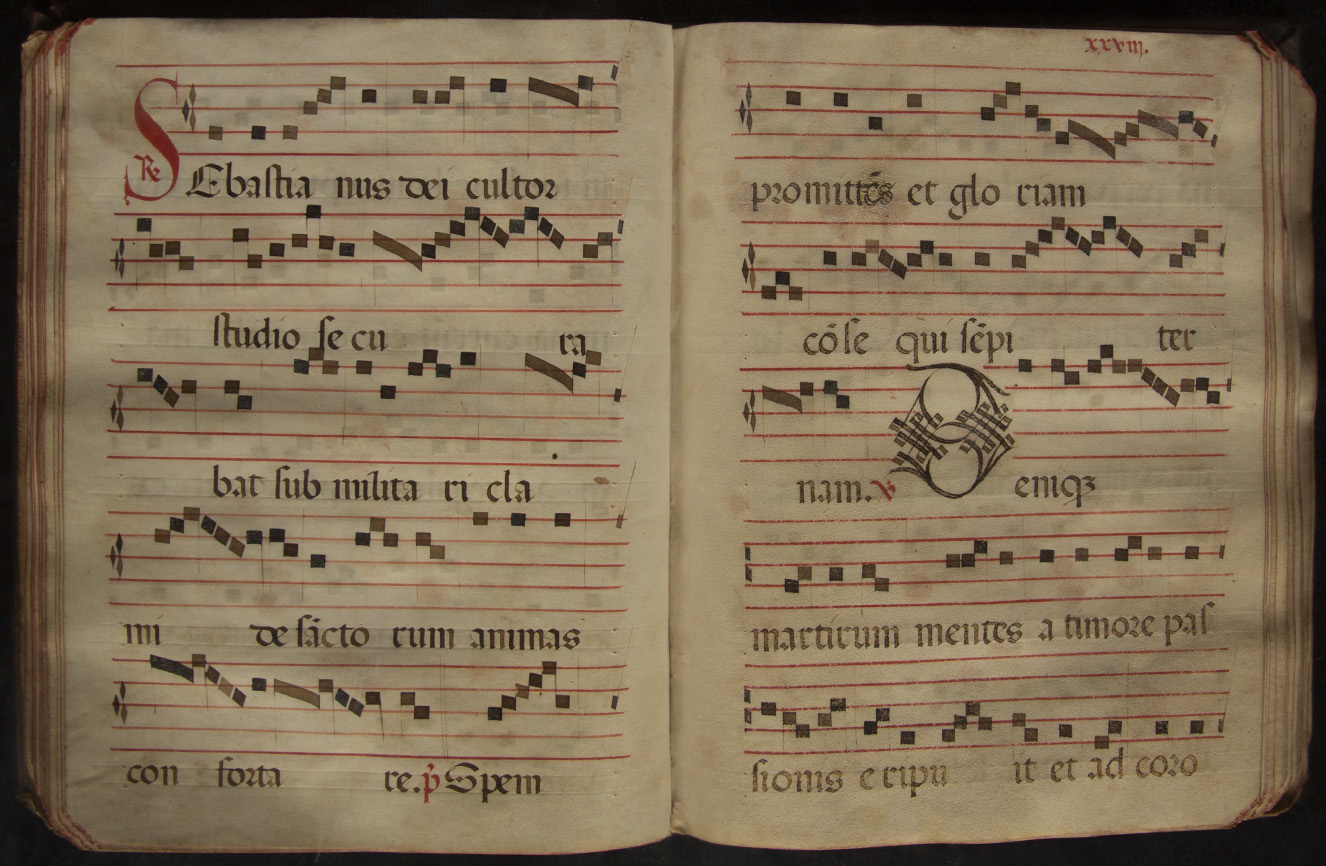 Re SEbastia nus dei cultor
studio se cu ra
bat sub milita ri cla
mi de sācto rum animas
con forta re. p̄ Spem
xxviii.
promittēs et glo riam
cōse qui sēpi ter
nam. v Deniqꝫ
martirum mentes a timore pas
sionis eripu it et ad coro